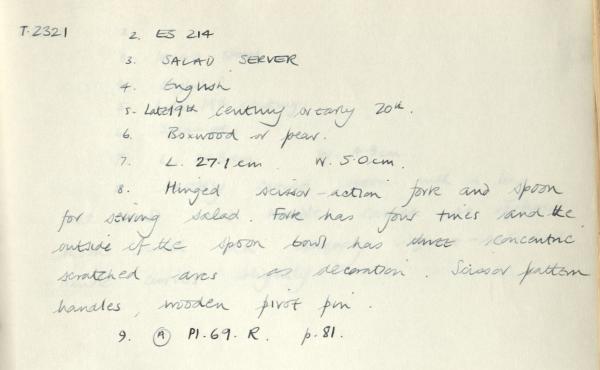 T.2321 2. ES 214
3. SALAD SERVER
4. English
5. Late 19th century or early 20th.
6. Boxwood or pear.
7. L. 27.1cm W. 5.0cm.
8. Hinged scissor-action fork and spoon
for serving salad. Fork has four tines and the
outside of the spoon bowl has concentric
scratched arcs as decoration. Scissor pattern
handles, wooden pivot pin.
9. A Pl. 69. R. p. 81.